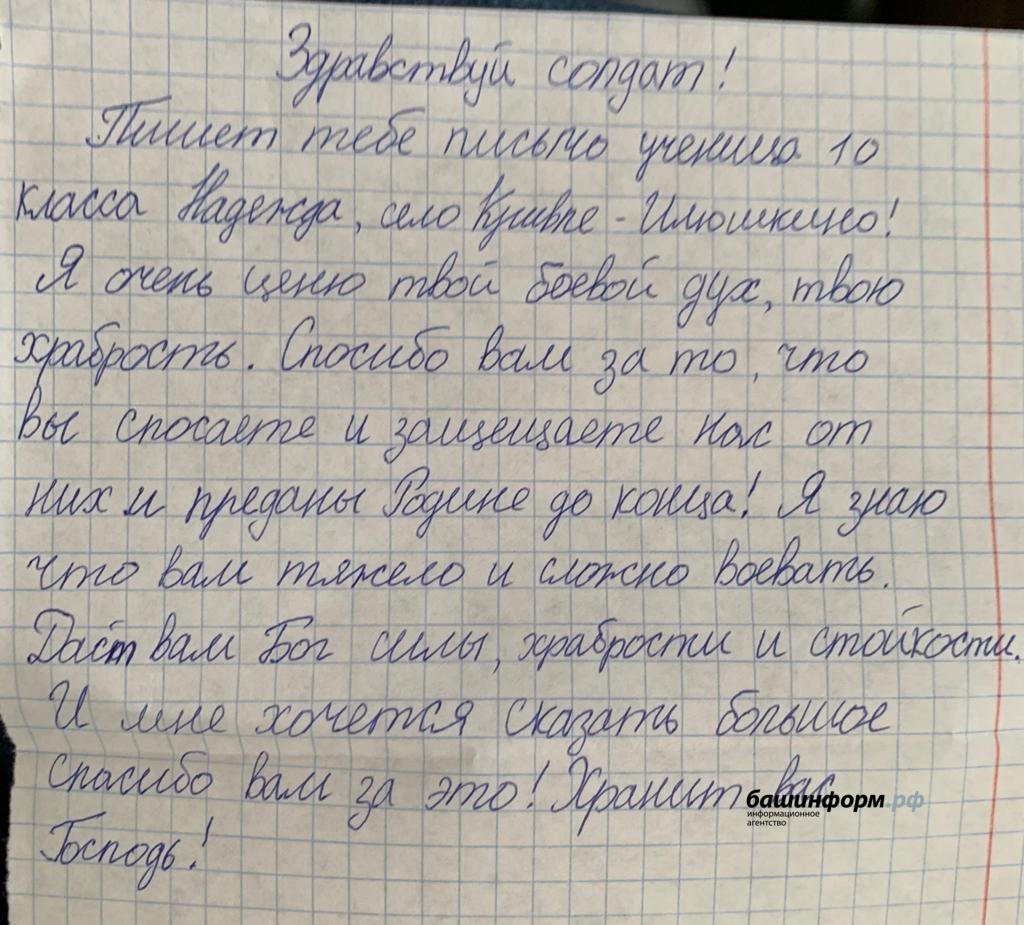 Здравствуй солдат!
Пишет тебе письмо ученица 10
класса Надежда, село Кривле-Илюшкино!
Я очень ценю твой боевой дух, твою
храбрость. Спосибо вам за то, что
вы спосаете и защещаете нас от
них и преданы Родине до конца! Я знаю
что вам тяжело и сложно воевать.
Даст вам Бог силы, храбрости и стойкости.
И мне хочется сказать большое
спасибо вам за это! Хранит вас
Господь!
башинформ.рф
информационное
агентство